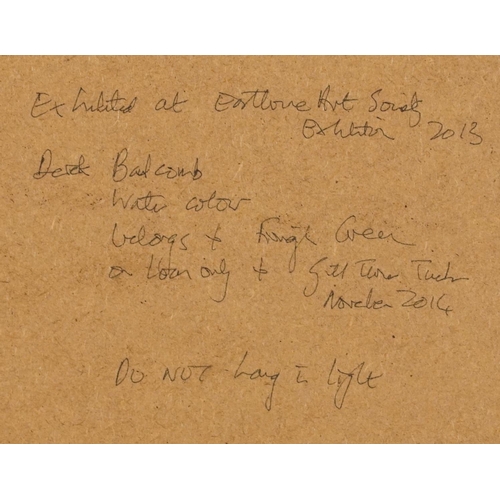 Exhibited at Eastbourne Art Society
Exhibition 2013
Derek
Water colour
belongs to Green
on loan only to Gill Tucker
November 2014
DO NOT hang in light